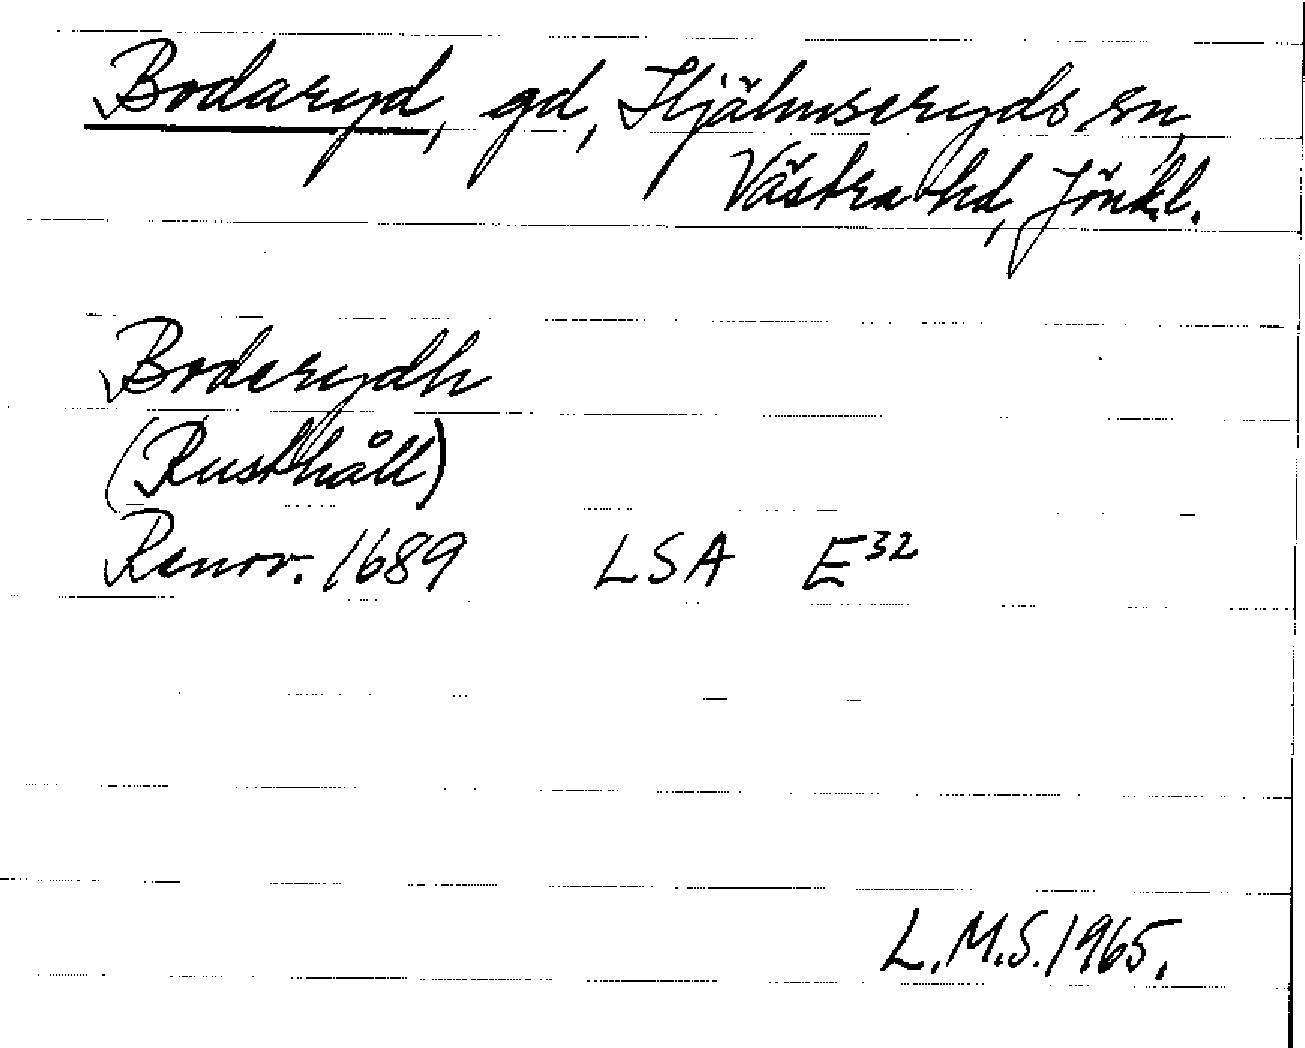 Bodaryd, gd, Hjälmseryds sn,
Västra hd, Jönk.l.
Boderydh
(Rusthåll)
Renov. 1689 LSA E32
L.M.S. 1965.